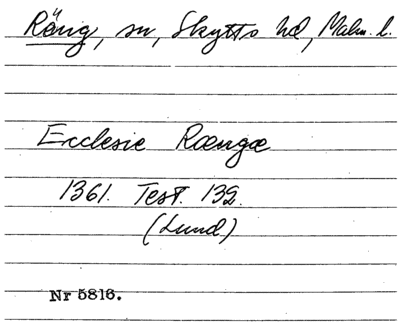 Räng, sn, Skytts hd, Malm. l.
Ecclesie Rængæ
1361. Test. 132.
(Lund)
Nr 5816.